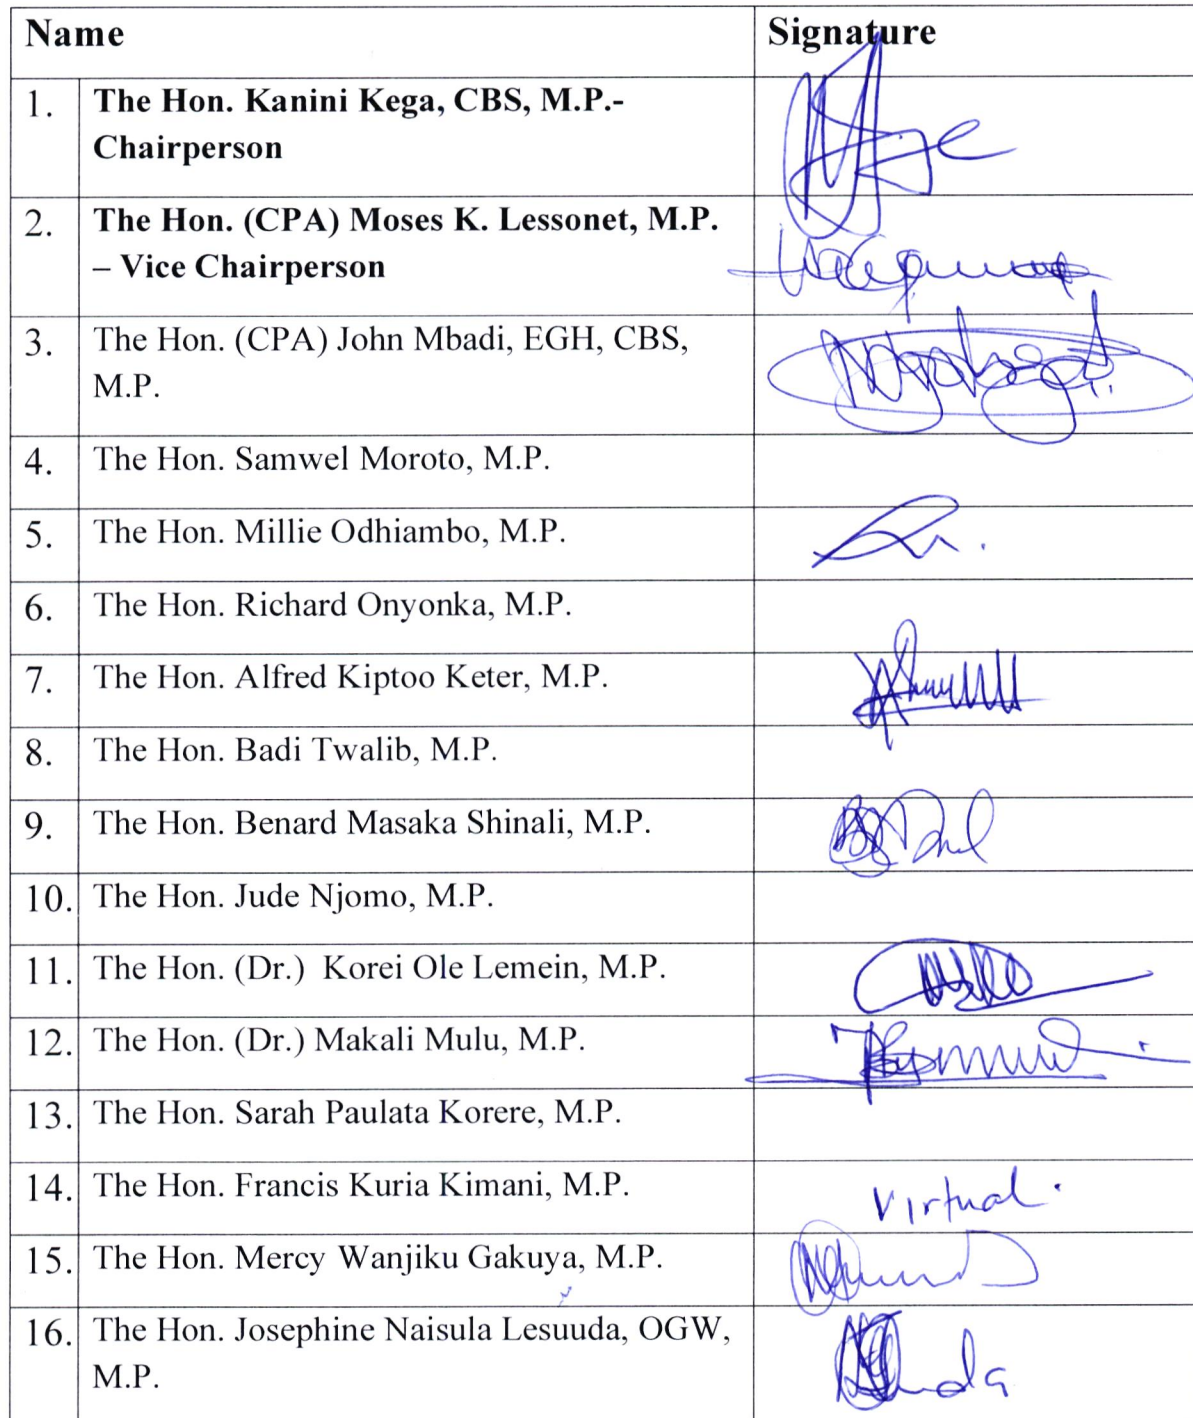 Name Signature
1. The Hon. Kanini Kega, CBS, M.P.-
Chairperson
2. The Hon. (CPA) Moses K. Lessonet, M.P.
– Vice Chairperson
3. The Hon. (CPA) John Mbadi, EGH, CBS,
M.P.
4. The Hon. Samwel Moroto, M.P.
5. The Hon. Millie Odhiambo, M.P.
6. The Hon. Richard Onyonka, M.P.
7. The Hon. Alfred Kiptoo Keter, M.P.
8. The Hon. Badi Twalib, M.P.
9. The Hon. Benard Masaka Shinali, M.P.
10. The Hon. Jude Njomo, M.P.
11. The Hon. (Dr.) Korei Ole Lemein, M.P.
12. The Hon. (Dr.) Makali Mulu, M.P.
13. The Hon. Sarah Paulata Korere, M.P.
14. The Hon. Francis Kuria Kimani, M.P. Virtual.
15. The Hon. Mercy Wanjiku Gakuya, M.P.
16. The Hon. Josephine Naisula Lesuuda, OGW,
M.P.